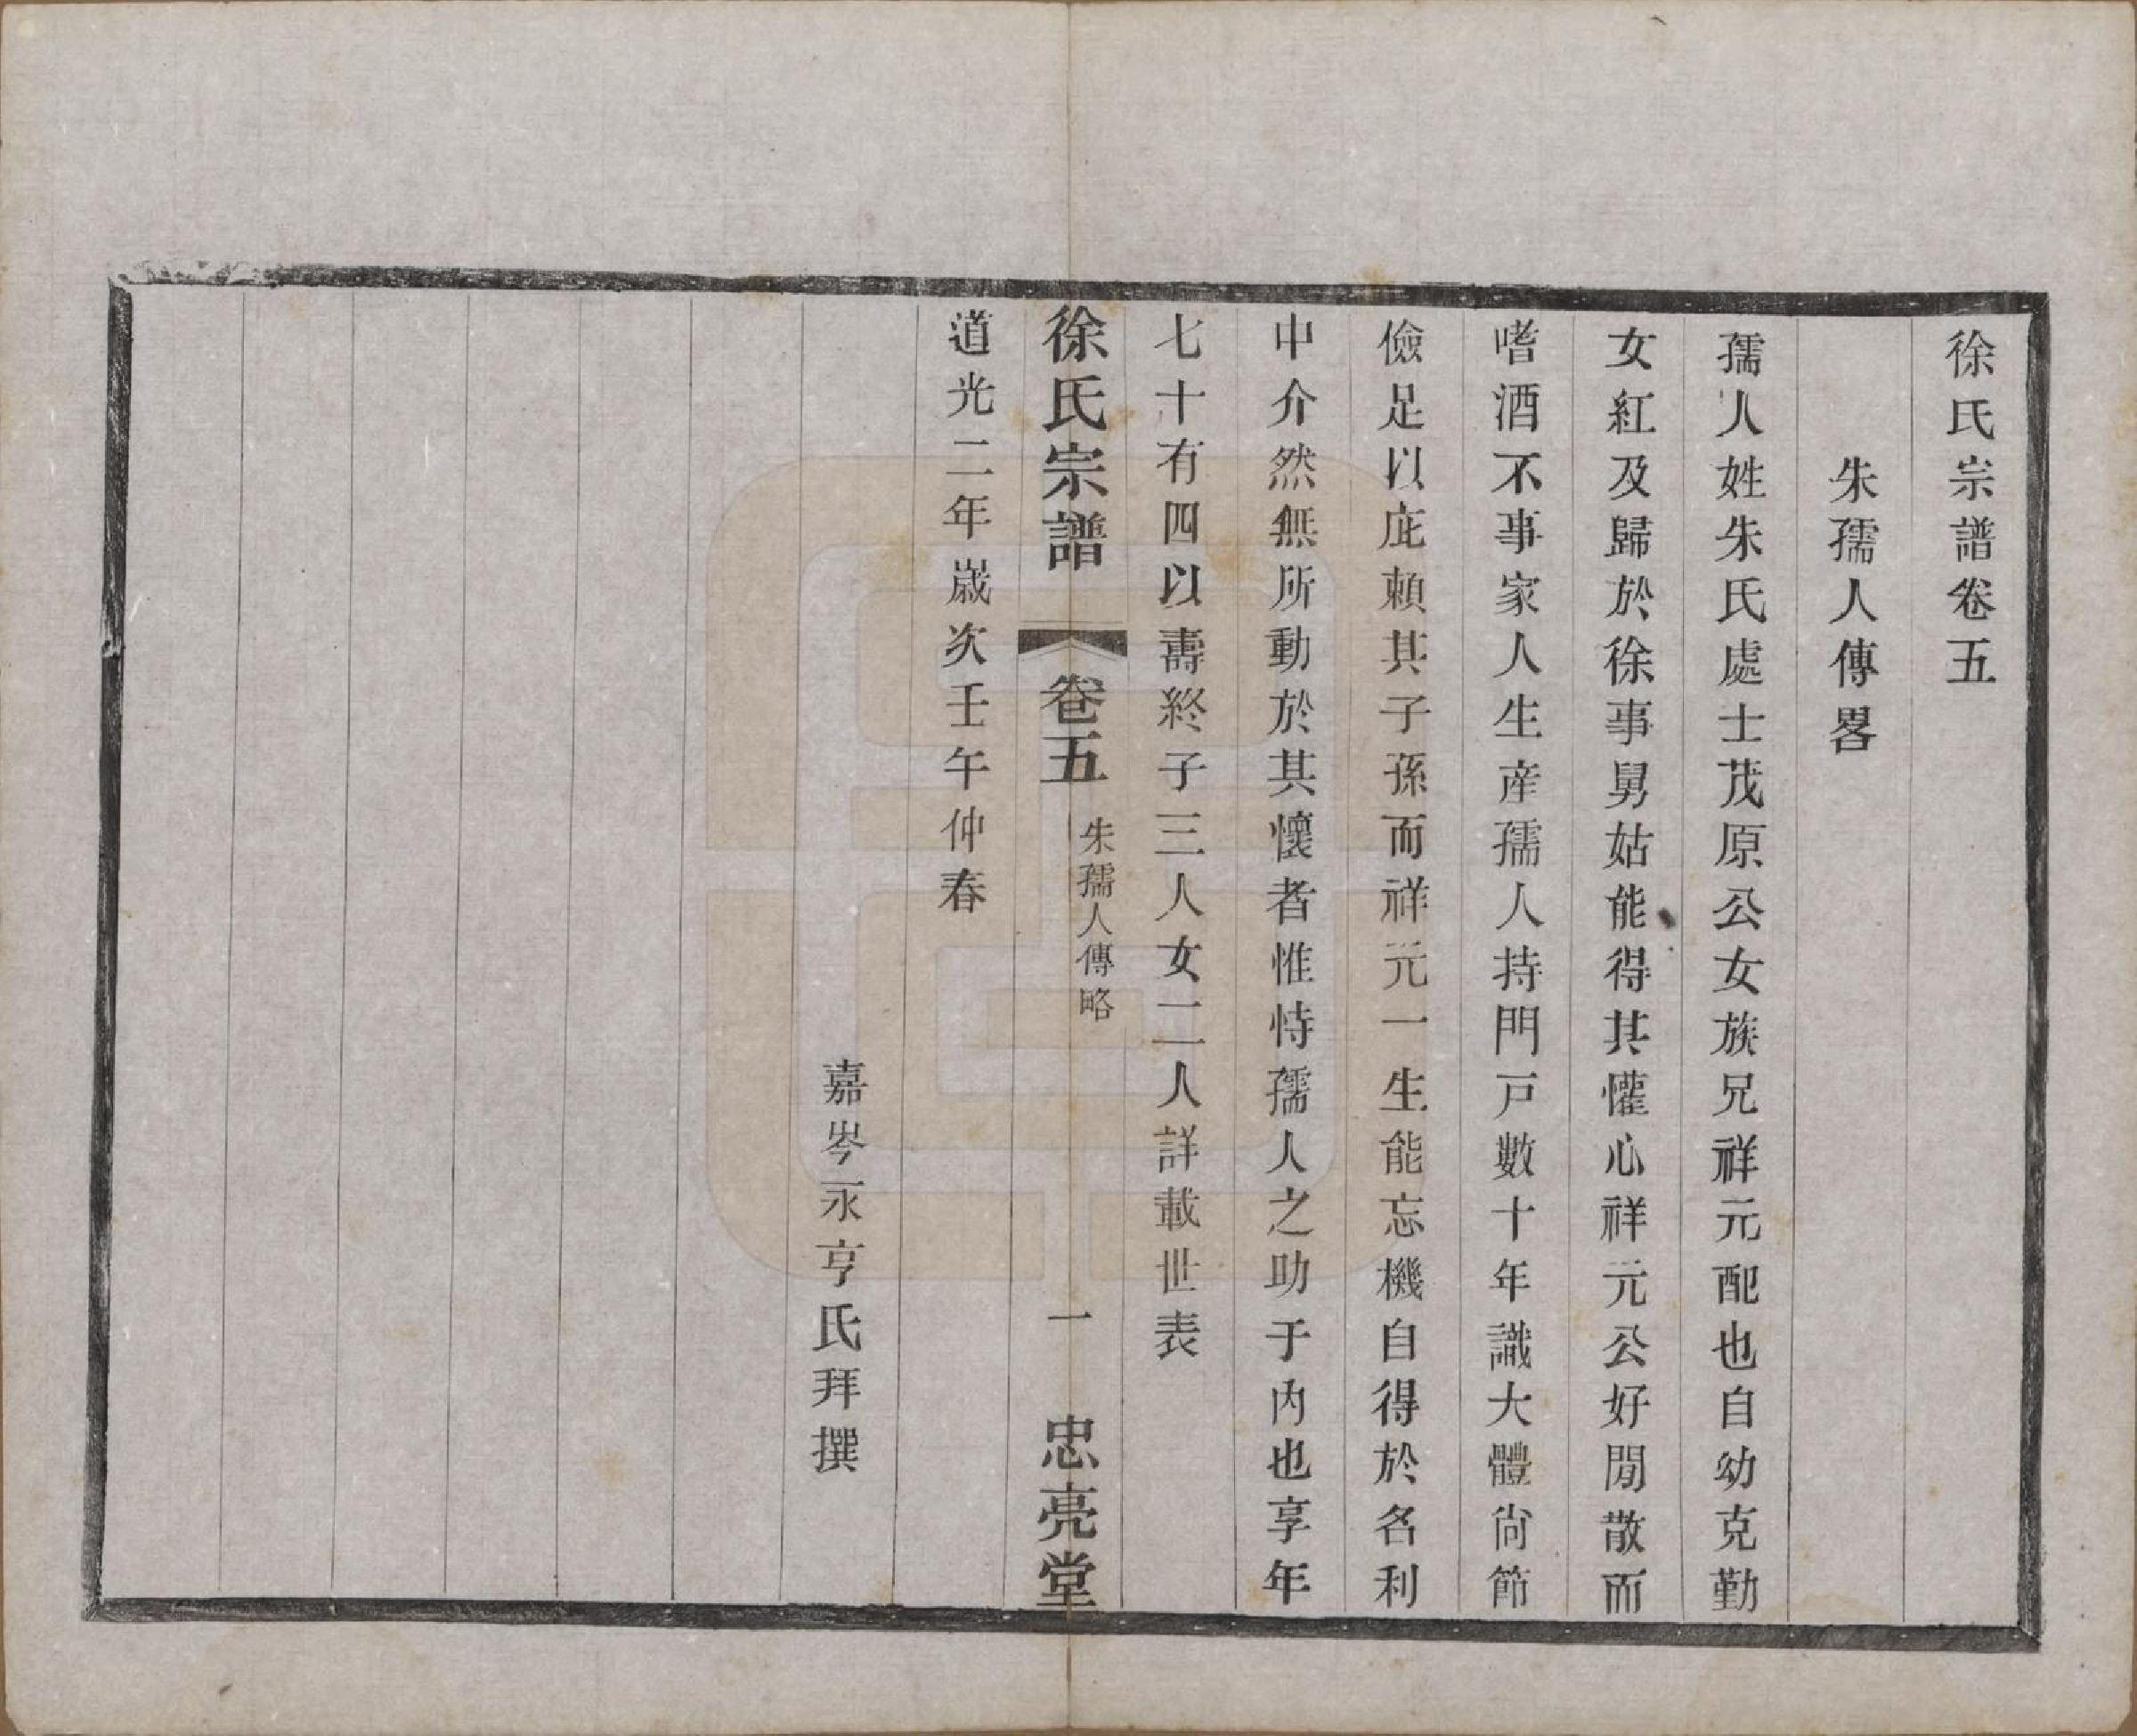 徐氏宗譜卷五
朱孺人傳畧
孺人姓朱氏處士茂原公女族兄祥元配也自幼克勤
女紅及歸於徐事舅姑能得其懽心祥元公好閒散而
嗜酒不事家人生産孺人持門戸數十年識大體尙節
儉足以庇賴其子孫而祥元一生能忘機自得於名利
中介然無所動於其懷者惟恃孺人之助于內也享年
七十有四以壽終子三人女二人詳載世表
徐氏宗譜 卷五 朱孺人傳略 一 忠亮堂
道光二年嵗次壬午仲春
嘉岑永亨氏拜撰